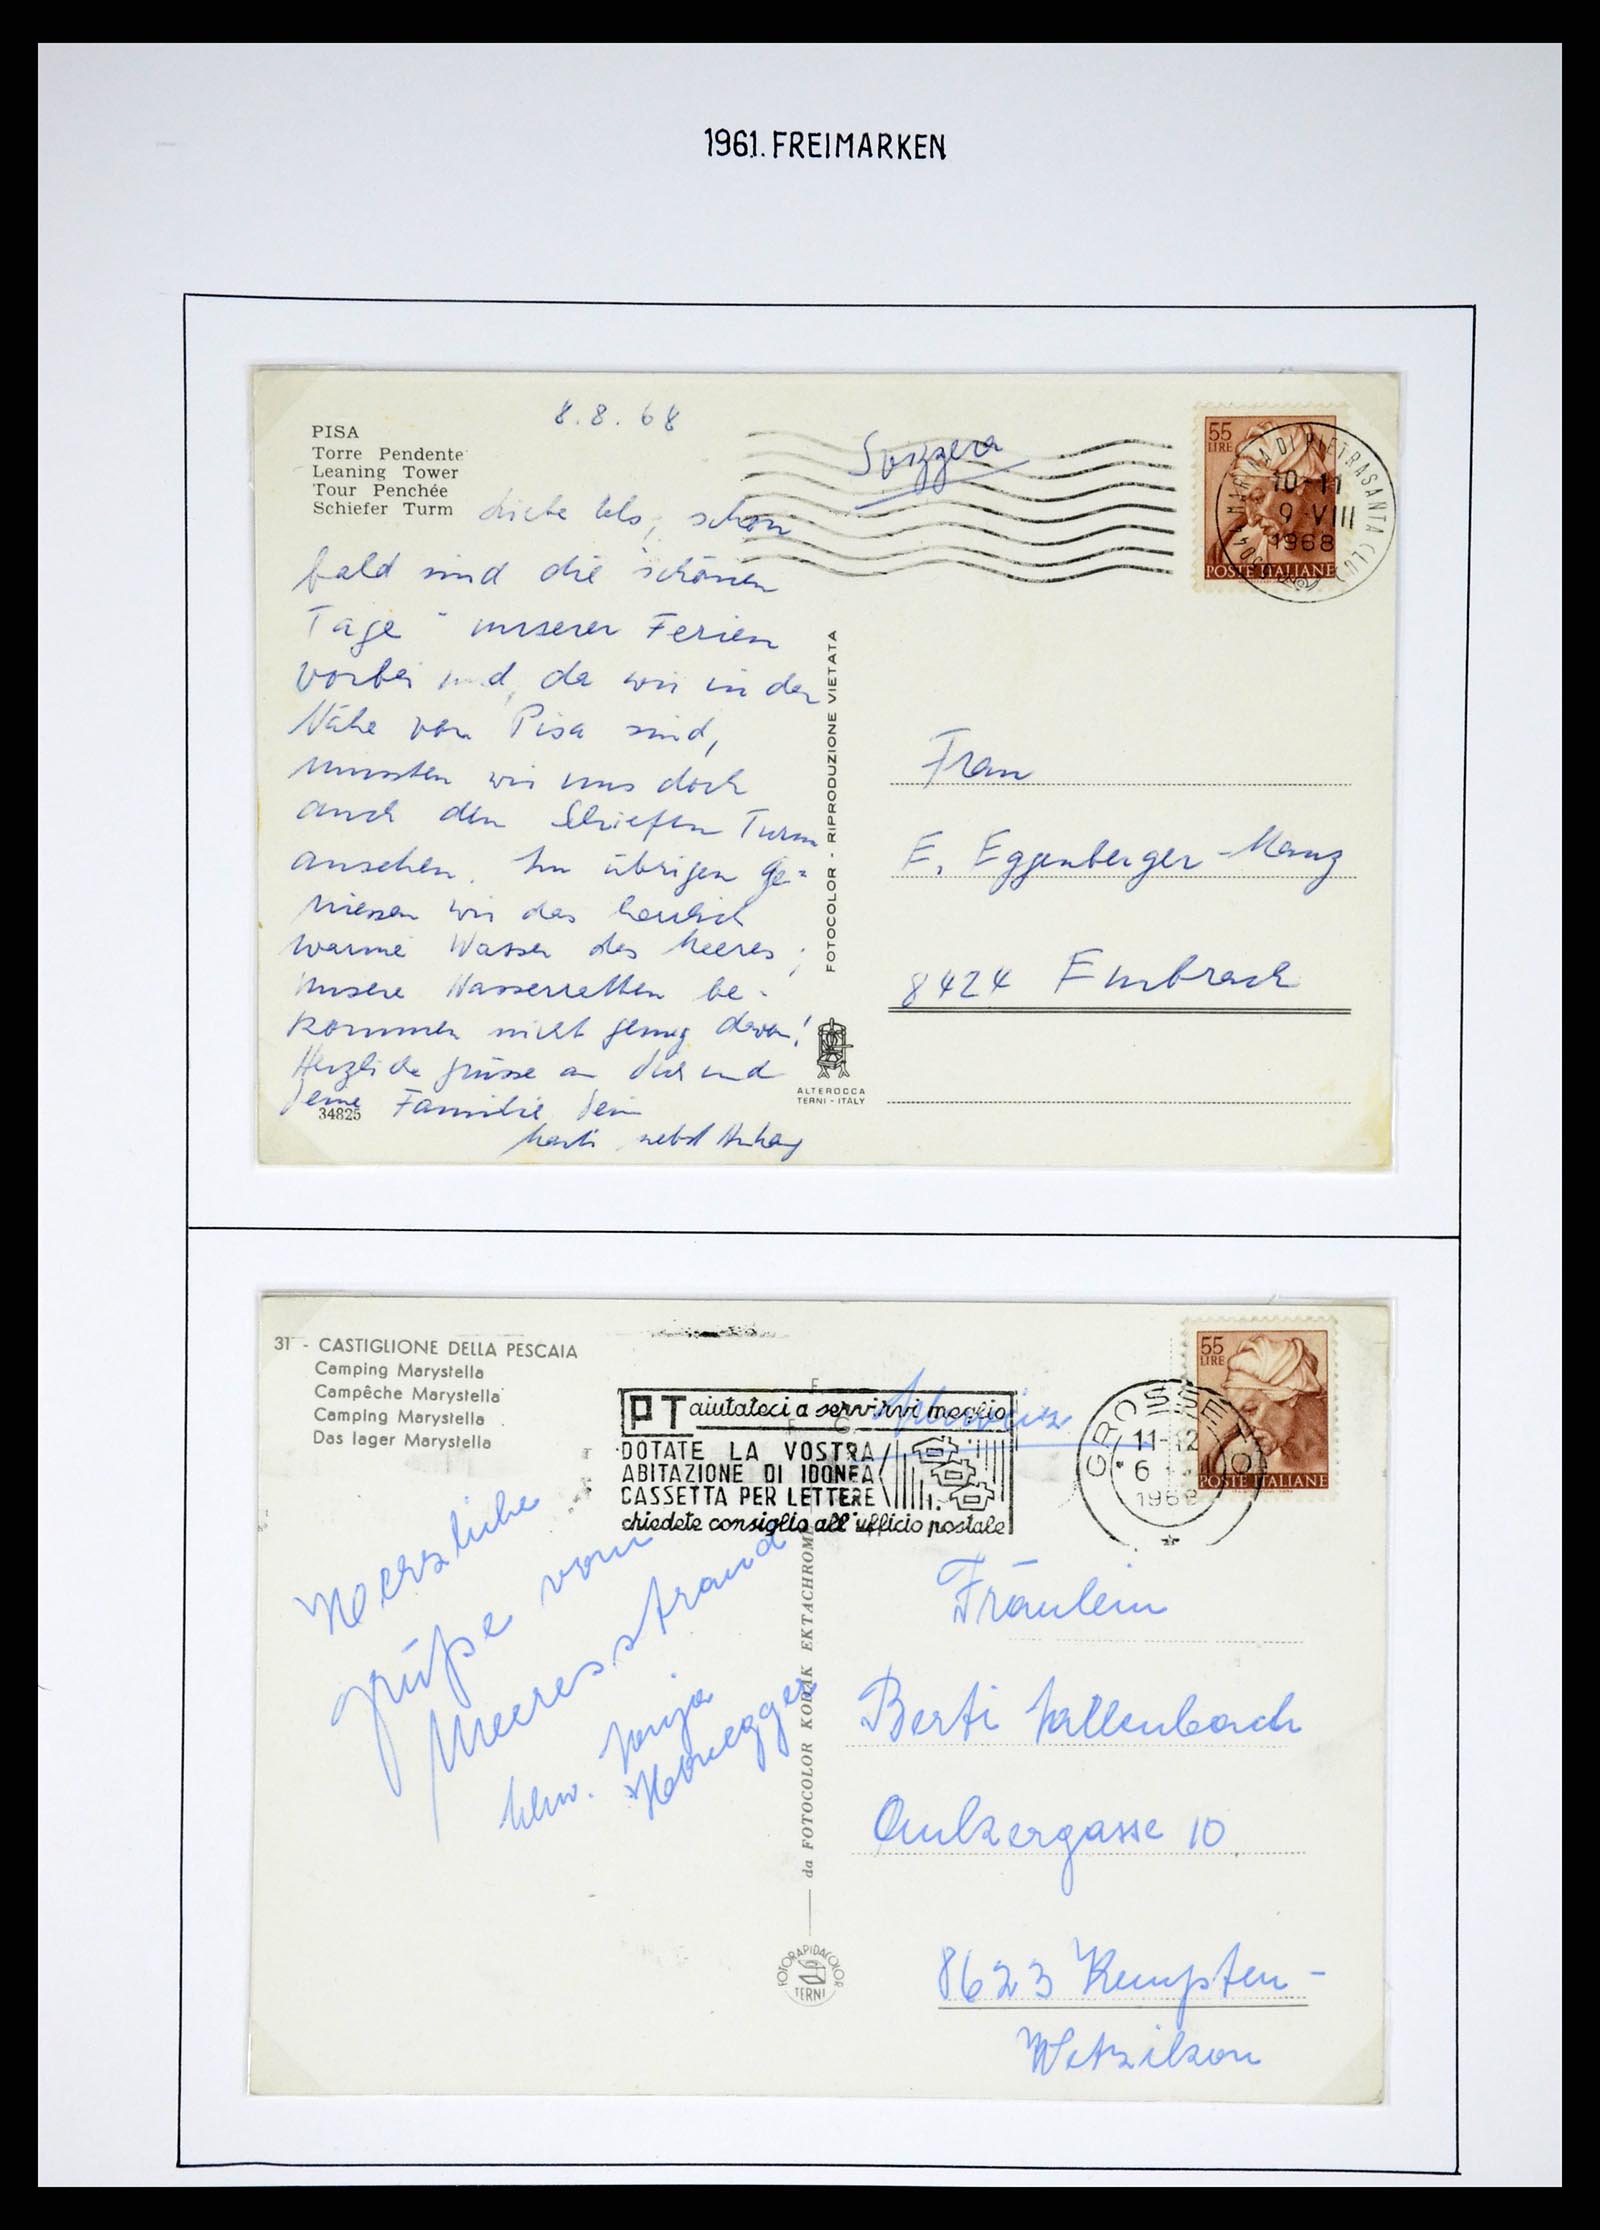 1961. FREIMARKEN
PISA
Torre Pendente
Leaning Tower
Tour Penchée
Schiefer Turm
8.8.68
Svizzera
55
LIRE
MARINA DI PIETRASANTA (LU)
10-11
9 VIII
1968
POSTE ITALIANE
Liebe Els, schon
bald sind die "schönen
Tage" unserer Ferien
vorbei und, da wir in der
Nähe von Pisa sind,
mussten wir uns doch
auch den Schiefen Turm
ansehen. Im übrigen ge=
niessen wir das herrlich
warme Wasser des Meeres;
unsere Wasserratten be-
kommen nicht genug davon!
Herzliche Grüsse an Dich und
deine Familie Dein
nebst Anhang
34825
FOTOCOLOR - RIPRODUZIONE VIETATA
ALTEROCCA
TERNI - ITALY
Frau
E. Eggenberger-Manz
8424 Embrach
31 - CASTIGLIONE DELLA PESCAIA
Camping Marystella
Campêche Marystella
Camping Marystella
Das lager Marystella
PT aiutateci a servirvi meglio
DOTATE LA VOSTRA
ABITAZIONE DI IDONEA
CASSETTA PER LETTERE
chiedete consiglio all'ufficio postale
Schweiz
GROSSETO
11-12
6
196
55
LIRE
POSTE ITALIANE
Herzliche
Grüße vom
Meeresstrand
Sonja
Honegger
da FOTOCOLOR KODAK EKTACHROME
FOTORAPIDACOLOR
TERNI
Fräulein
Berti Wallenbach
10
8623 Kempten-
Wetzikon